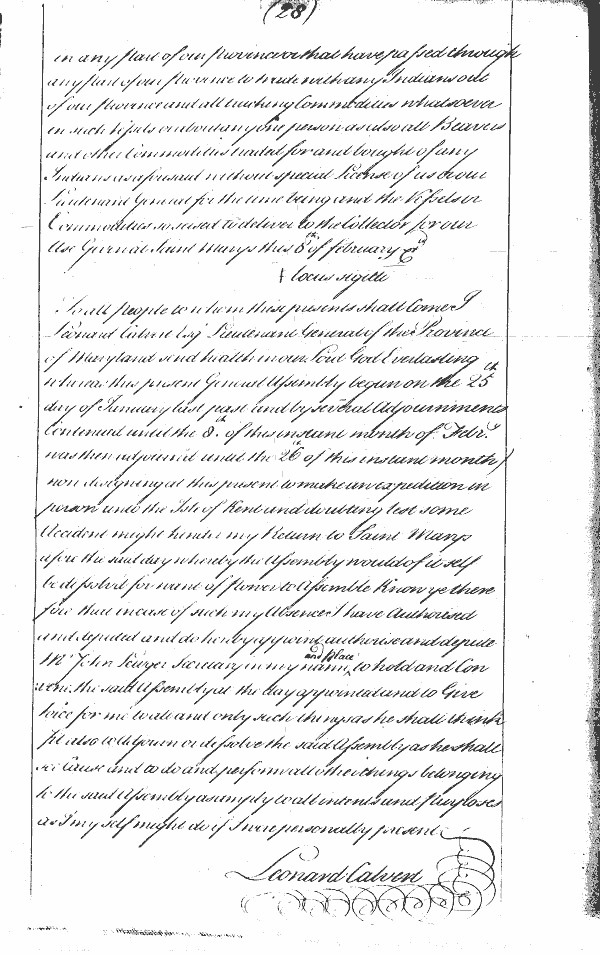 (28)
in any part of our Province or that have passed through
any part of our Province to trade with any Indians out
of our Province and all trucking Commodities whatsoever
in such Vessels or about any one person as also all Beavers
and other Commodities traded for and bought of any
Indians as aforesaid without special License of us or our
Lieutenant General for the time being and the Vessels or
Commodities so seised to deliver to the Collector for our
Use Given at Saint Marys this 8th of February
locus sigilli
To all people to whom these presents shall Come I
Leonard Calvert Esqr Lieutenant General of this Province
of Maryland send health in our Lord God Everlasting
whereas this present General Assembly begun on the 25th
day of January last past and by several Adjournments
Continued until the 8th of this instant month of Febry
was then adjourned until the 26th of this instant month
now designing at this present to make an expedition in
person unto the Isle of Kent and doubting lest some
Accident might hinder my Return to Saint Marys
afore the said day whereby the Assembly would of it self
be dissolved for want of Power to Assemble Know ye there
fore that in case of such my Absence I have Authorised
and deputed and do hereby appoint authorise and depute
Mr John Lewger Secretary in my name and place to hold and Con
vene the said Assembly at the day appointed and to Give
Voice for me to all and only such things as he shall think
fit also to Adjourn or dissolve the said Assembly as he shall
see Cause and to do and perform all other things belonging
to the said Assembly as amply to all intents and Purposes
as I my self might do if I were personally present
Leonard Calvert